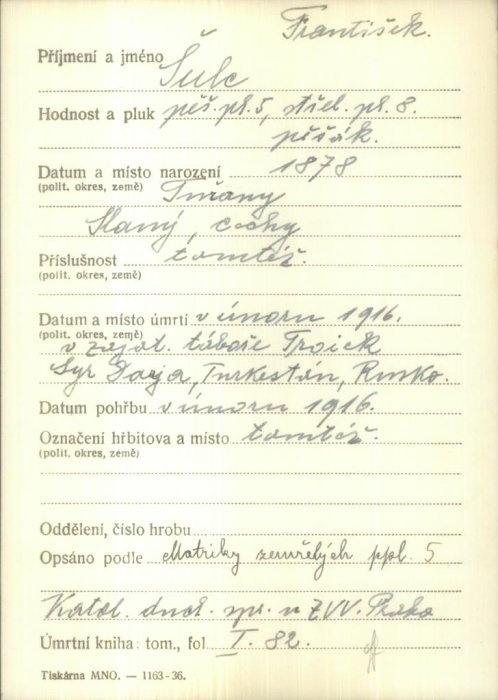 František.
Příjmení a jméno Šulc
Hodnost a pluk pěš. pl. 5, střel. pl. 8.
pěšák.
Datum a místo narození 1878
(polit. okres, země) Tuřany
Slaný, čechy
Příslušnost tamtéž.
(polit. okres, země)
Datum a místo úmrtí v únoru 1916.
(polit. okres, země)
v zajat. táboře Troick
Syr Darja, Turkestán, Rusko.
Datum pohřbu v únoru 1916.
Označení hřbitova a místo tamtéž.
(polit. okres, země)
Oddělení, číslo hrobu
Opsáno podle Matriky zemřelých ppl. 5
Katol. duch. spr. u ZVV. Praha
Úmrtní kniha: tom., fol I. 82.
Tiskárna MNO. — 1163-36.